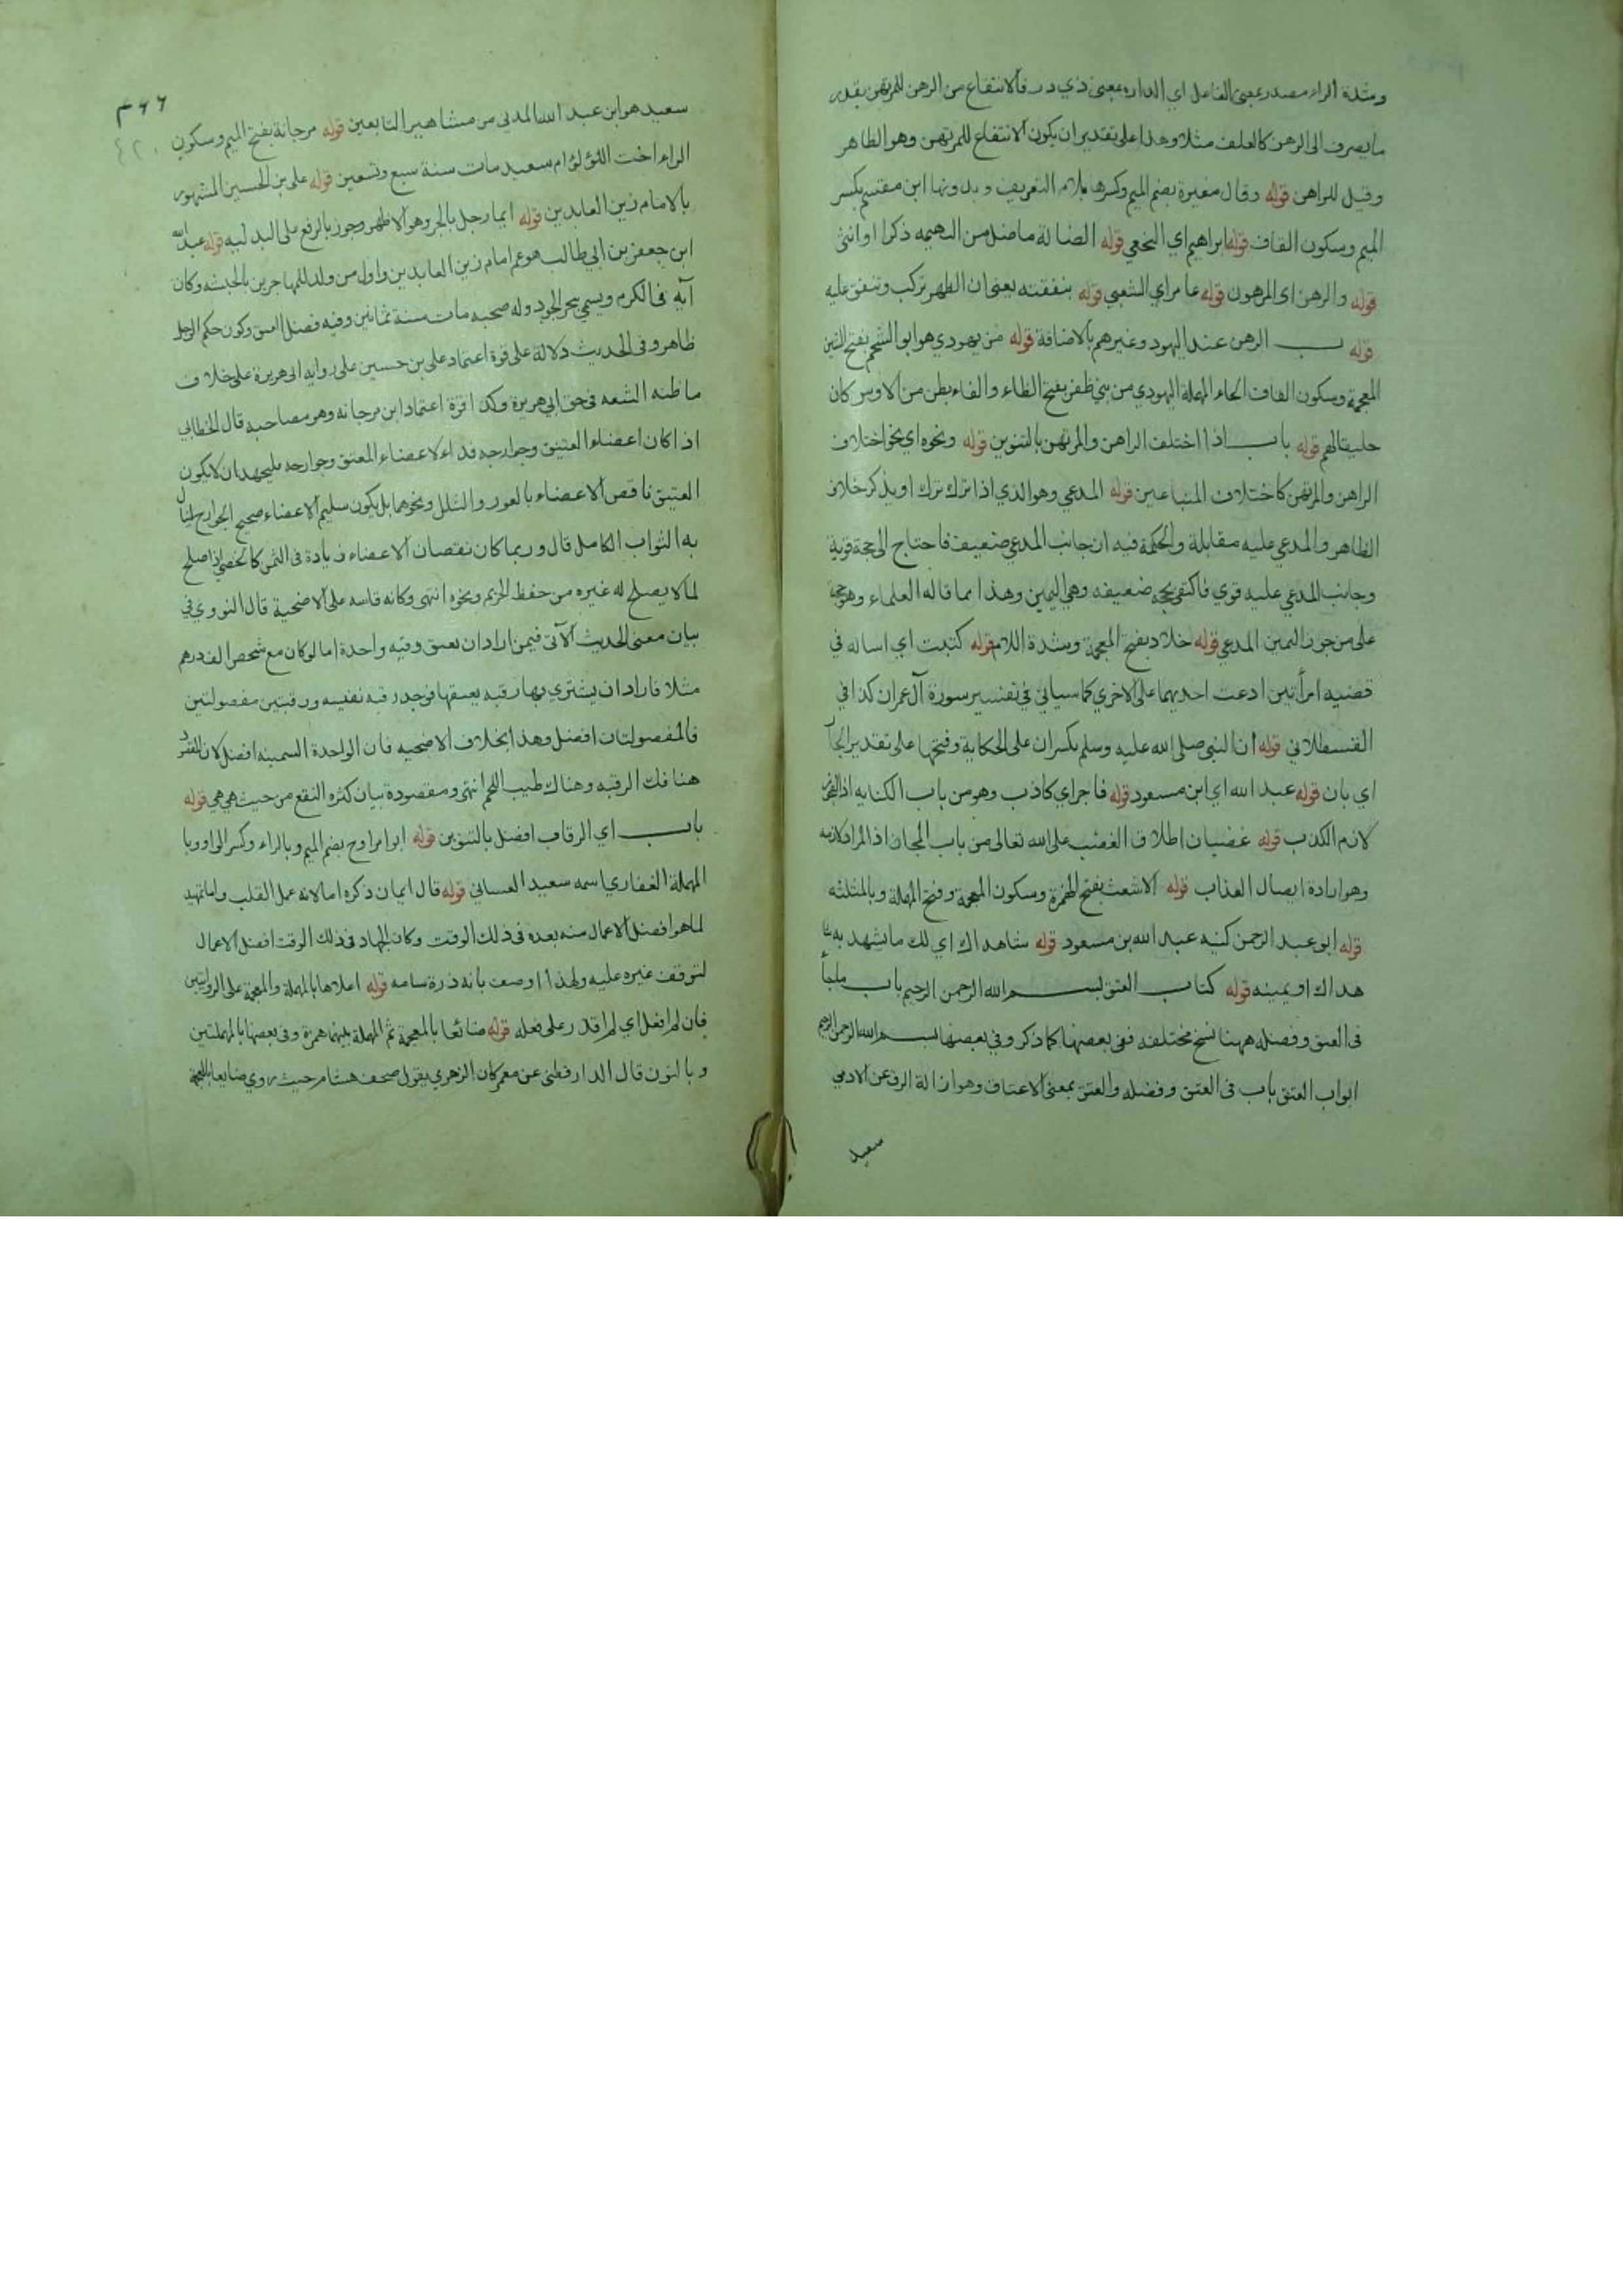 وشدة الراء مصدر بمعنى الفاعل اي الدارة بمعنى ذي در فالانتفاع من الرهن للمرتهن بقدر
ما يصرف الى الرهن كالعلف مثلا وهذا على تقدير ان يكون الانتفاع للمرتهن وهو الظاهر
وقيل للراهن قوله وقال مغيرة بضم الميم وكسرها بلام التعريف وبدونها ابن مقسم بكسر
الميم وسكون القاف قوله ابراهيم اي النخعي قوله الضالة ما ضل من البهيمه ذكرا او انثى
قوله والرهن اى المرهون قوله عامر اي الشعبي قوله بنفقته يعنى ان الظهر تركب وتنفق عليه
قوله ب الرهن عند اليهود وغيرهم بالاضافة قوله من يهودي هو ابو الشحم بفتح الشين
المعجمة وسكون الفاف الحاء المهملة اليهودي من بني ظفر بفتح الظاء والفاء بطن من الاوس كان
حليفا لهم قوله باب اذا اختلف الراهن والمرتهن بالتنوين قوله ونحوه اي نحو اختلاف
الراهن والمرتهن كاختلاف المتباعين قوله المدعي وهو الذي اذا ترك ترك او يذكر خلاف
الظاهر والمدعي عليه مقابلة والحكمة فيه ان جانب المدعي ضعيف فاحتاج الى حجة قوية
وجانب المدعي عليه قوي فاكتفى بحجه ضعيفه وهي اليمين وهذا مما قاله العلماء وهو حجة
على من جوز اليمين المدعي قوله خلاد بفتح المعجمة وشدة اللام قوله كتبت اي اساله في
قضيه امرأتين ادعت احديهما على الاخري كما سياتي في تفسير سورة آل عمران كذا في
القسطلاني قوله ان النبي صلى الله عليه وسلم بكسر ان على الحكاية وفتحها على تقدير الجار
اي بان قوله عبد الله اي ابن مسعود قوله فاجر اي كاذب وهو من باب الكنايه اذ الفجور
لازم الكذب قوله غضبان اطلاق الغضب على الله تعالى من باب المجاز اذ المراد لازمه
وهو ارادة ايصال العذاب قوله الاشعث بفتح الهمزة وسكون المعجمة وفتح المهملة وبالمثلثه
قوله ابو عبد الرحمن كنيه عبد الله بن مسعود قوله شاهداك اي لك ما يشهد به
هداك او يمينه قوله كتاب العتق بسم الله الرحمن الرحيم باب ما جأ
فى العتق وفضله ههنا نسخ مختلفه ففى بعضها كما ذكر وفي بعضها بسم الله الرحمن الرحيم
ابواب العتق باب فى العتق وفضله والعتق بمعنى الاعتاق وهو ازالة الرق عن الادمي
سعيد
٣٦٦
سعيد هو ابن عبد الله المدني من مشاهير التابعين قوله مرجانة بفتح الميم وسكون
الراء اخت اللؤلؤ ام سعيد مات سنة سبع وتسعين قوله على بن الحسين المشهور
بالامام زين العابدين قوله ايما رجل بالجر وهو الاظهر وجوز بالرفع على البدليه قوله عبد الله
ابن جعفر بن ابي طالب هو عم امام زين العابدين واول من ولد للمهاجرين بالحبشه وكان
آيه فى الكرم ويسمي بحر الجود وله صحبه مات سنة ثمانين وفيه فضل العتق وكون حكم الرجل
ظاهر وفى الحديث دلالة على قوة اعتماد على بن حسين على روايه ابى هريرة على خلاف
ما ظنه الشعه فى حق ابي هريرة وكذا قوة اعتماد ابن مرجانه وهو مصاحبه قال الخطابي
اذا كان اعضاء العتيق وجوارحه فداء لاعضاء المعتق وجوارحه فليجهد ان لا يكون
العتيق ناقص الاعضاء بالعور والشلل ونحوهما بل يكون سليم الاعضاء صحيح الجوارح لينال
به الثواب الكامل قال وربما كان نقصان الاعضاء زيادة فى الثمن كالخصي اذا صلح
لما لا يصلح له غيره من حفظ الحريم ونحوه انتهى وكانه قاسه على الاضحية قال النووي في
بيان معنى الحديث الآتى فيمن اراد ان يعتق رقبه واحدة اما لو كان مع شخص الف درهم
مثلا فاراد ان يشتري بها رقبه يعتقها فوجد رقبه نفيسه ورقبتين مفضولتين
فالمفضولتان افضل وهذا بخلاف الاضحيه فان الواحدة السمينه افضل لان القصد
هنا فك الرقبه وهناك طيب اللحم انتهى ومقصودة بيان كثره النفع من حيث هي هي قوله
باب اي الرقاب افضل بالتنوين قوله ابو امراوح بضم الميم وبالراء وكسر الواو وبا
المهملة الغفاري اسمه سعيد الغساني قوله قال ايمان ذكره اما لانه عمل القلب واما تمهيد
لما هو افضل الاعمال منه بعده فى ذلك الوقت وكان الجهاد فى ذلك الوقت افضل الاعمال
لتوقف غيره عليه ولهذا اوصف بانه ذرة سامه قوله اعلاها بالمهملة والمعجمة على الروايتين
فان لم افعل اي لم اقدر على فعله قوله ضائعا بالمعجمة ثم المهملة بينهما همزة وفى بعضها بالمهملتين
وبالنون قال الدارقطنى عن معمر كان الزهري يقول صحف هشام حيث روي ضايعا بالمعجمة